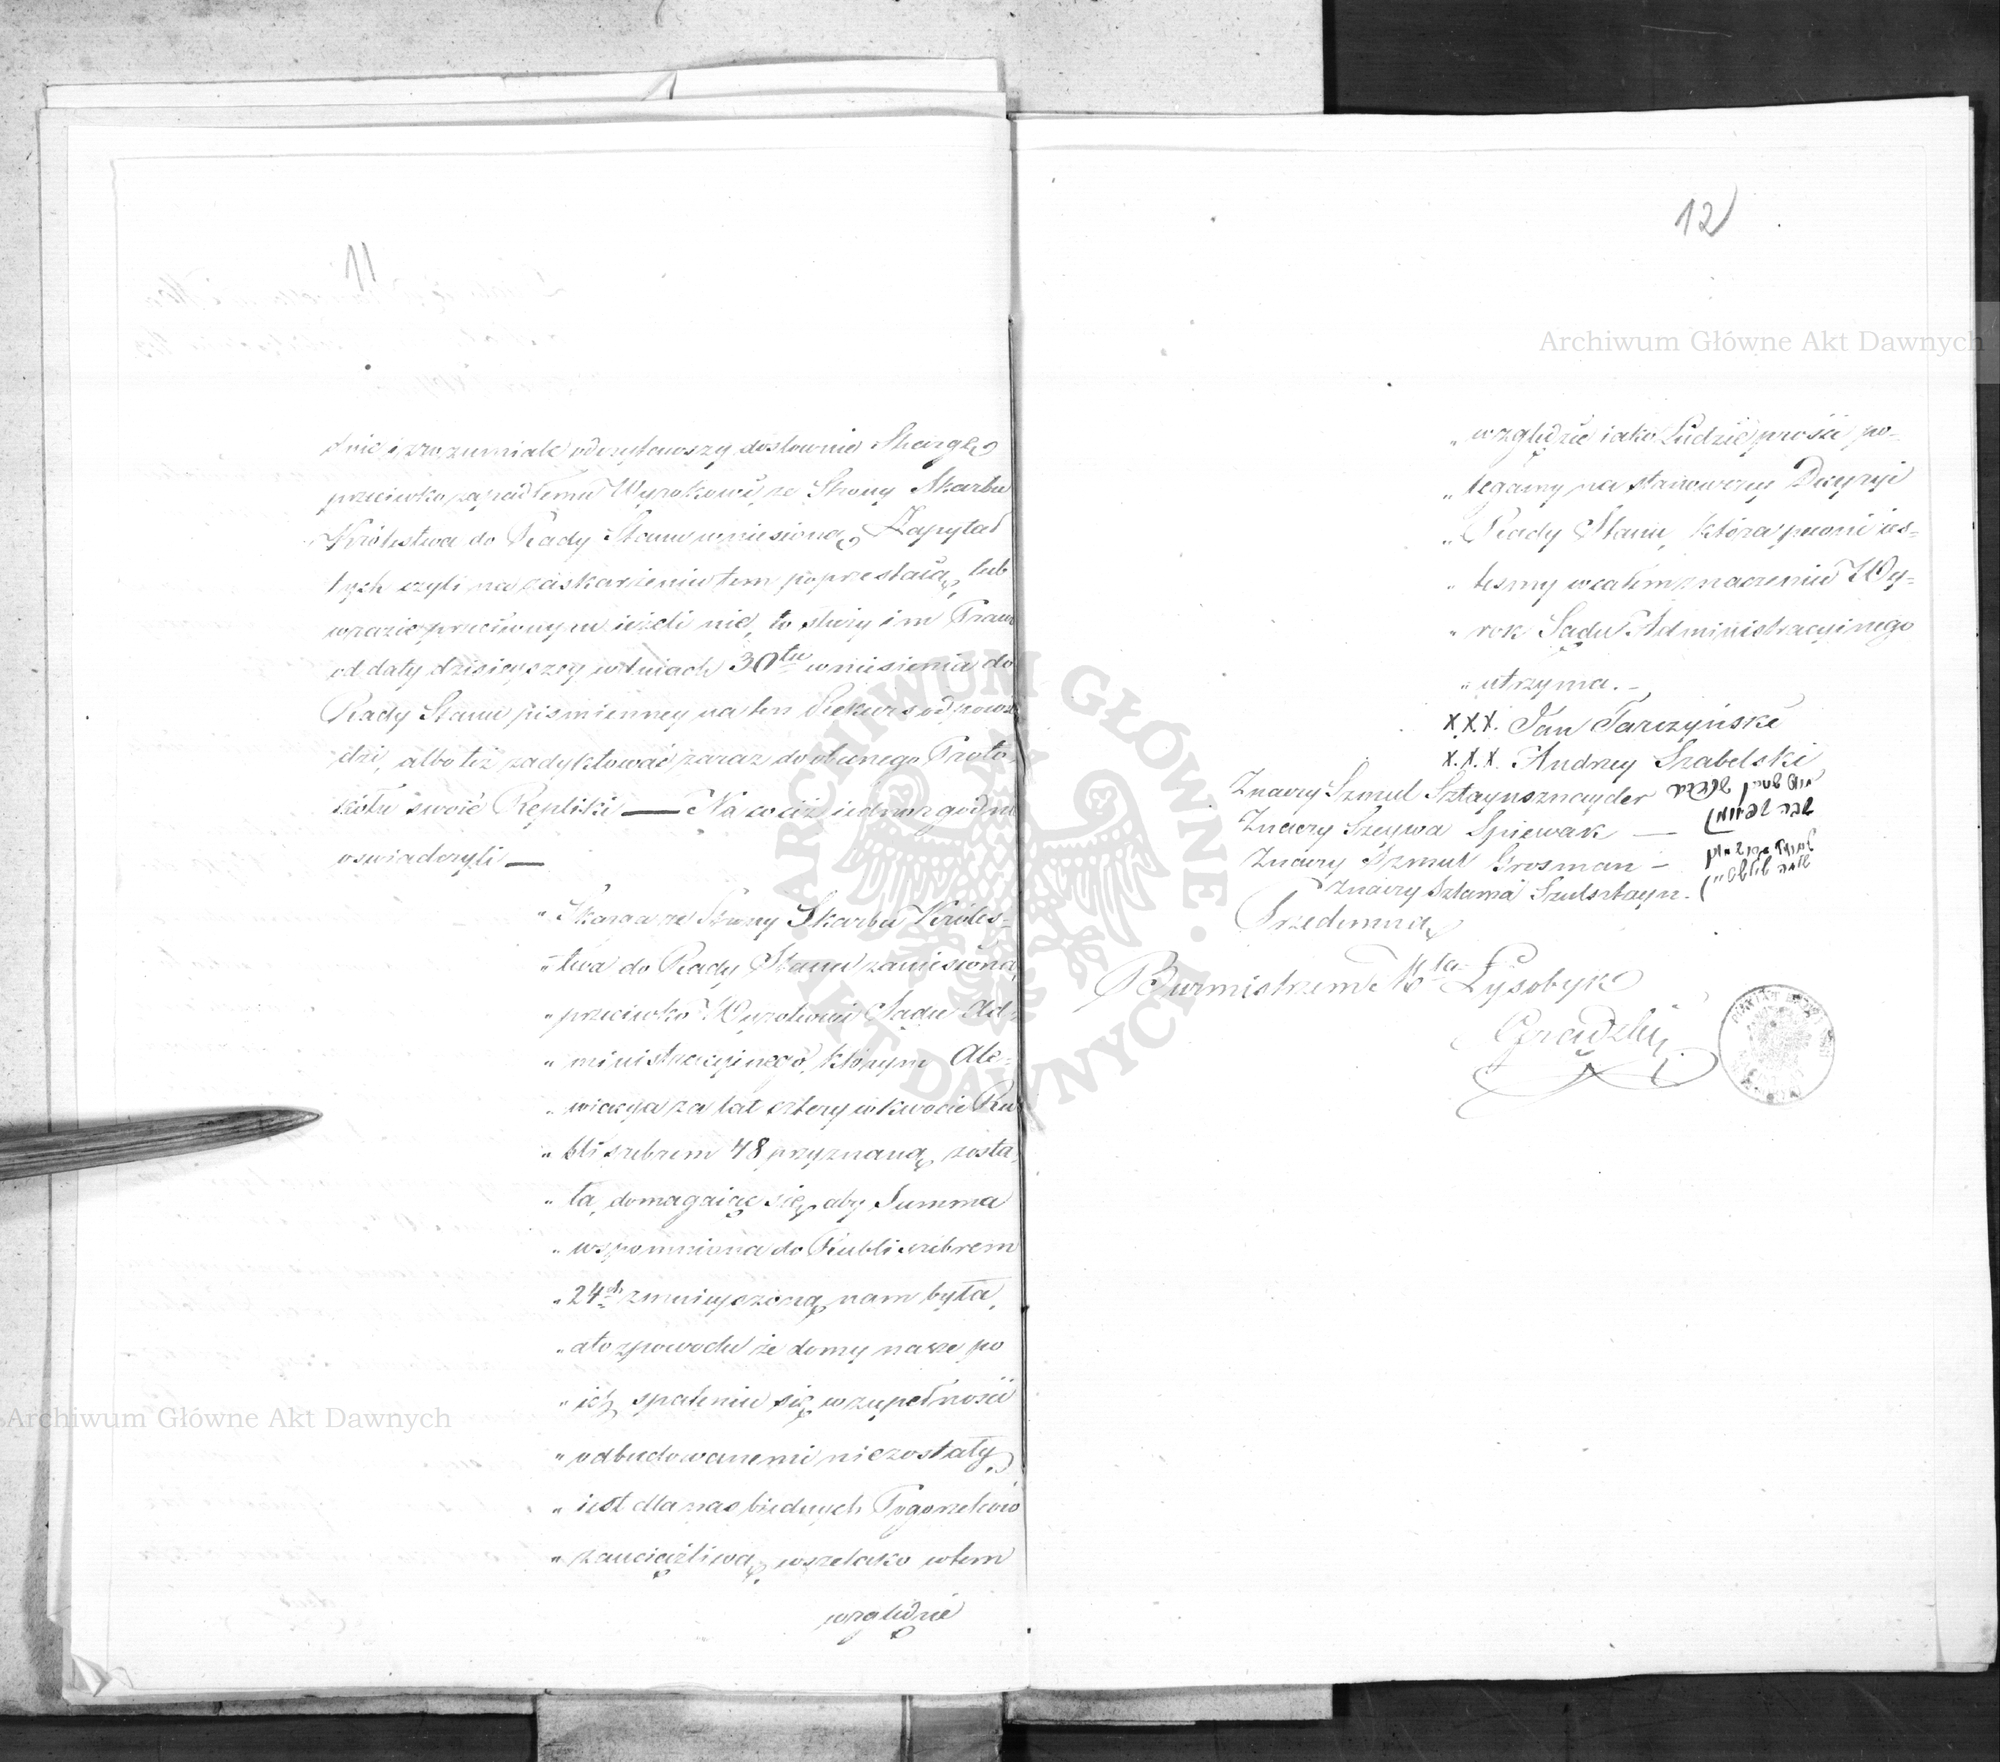 11
dnie i zrozumiale odczytawszy dosłownie Skargę
przeciwko zapadłemu Wyrokowi ze Strony Skarbu
Królestwa do Rady Stanu wniesioną, Zapytał
tych czyli na zaskarżeniu tem poprzestają, lub
wrazie przeciwnym ieżeli nie, to służy im Prawo
od daty dzisieyszey w dniach 30tu wniesienia do
Rady Stanu piśmienney na ten Rekurs odpowie
dzi, albo też zadyktować zaraz do obecnego Proto
kółu swoié Repliki — Na co ciż iednozgodnie
oświadczyli —
„ Skarga ze Strony Skarbu Króles-
„ twa do Rady Stanu zaniesiona,
„ przeciwko Wyrokowi Sądu Ad-
„ ministracyinego, którym Ale-
„ wiacya za lat cztery w kwocie Ru
„ bli srebrem 48 przyznaną zosta
„ ła, domagaiąc się, aby Summa
„ wspomniona do Rubli srebrem
„ 24ch zmnieyszoną nam była,
„ a to z powodu że domy nasze po
„ ich spaleniu się w zupełności
„ odbudowanemi nie zostały,
„ iest dla nas biednych Pogorzelców
„ zauciążliwą, wszelako w tem
względzie
12
„ względzie iako Ludzie prości po-
„ legamy na stanowczey Decyzyi
„ Rady Stanu, która pewni ies-
„ teśmy w całem znaczeniu Wy-
„ rok Sądu Administracyinego
„ utrzyma. —
X.X.X. Jan Tarczyński
X.X.X. Andrzey Szabelski
Znaczy Szmul Sztaynsznayder
Znaczy Szeywa Spiewak —
Znaczy Szmul Grosman —
Znaczy Szlama Szulsztayn.
Przedemną
Burmistrzem Mta Łysobyk
Archiwum Główne Akt Dawnych
Archiwum Główne Akt Dawnych
ARCHIWUM GŁÓWNE AKT DAWNYCH